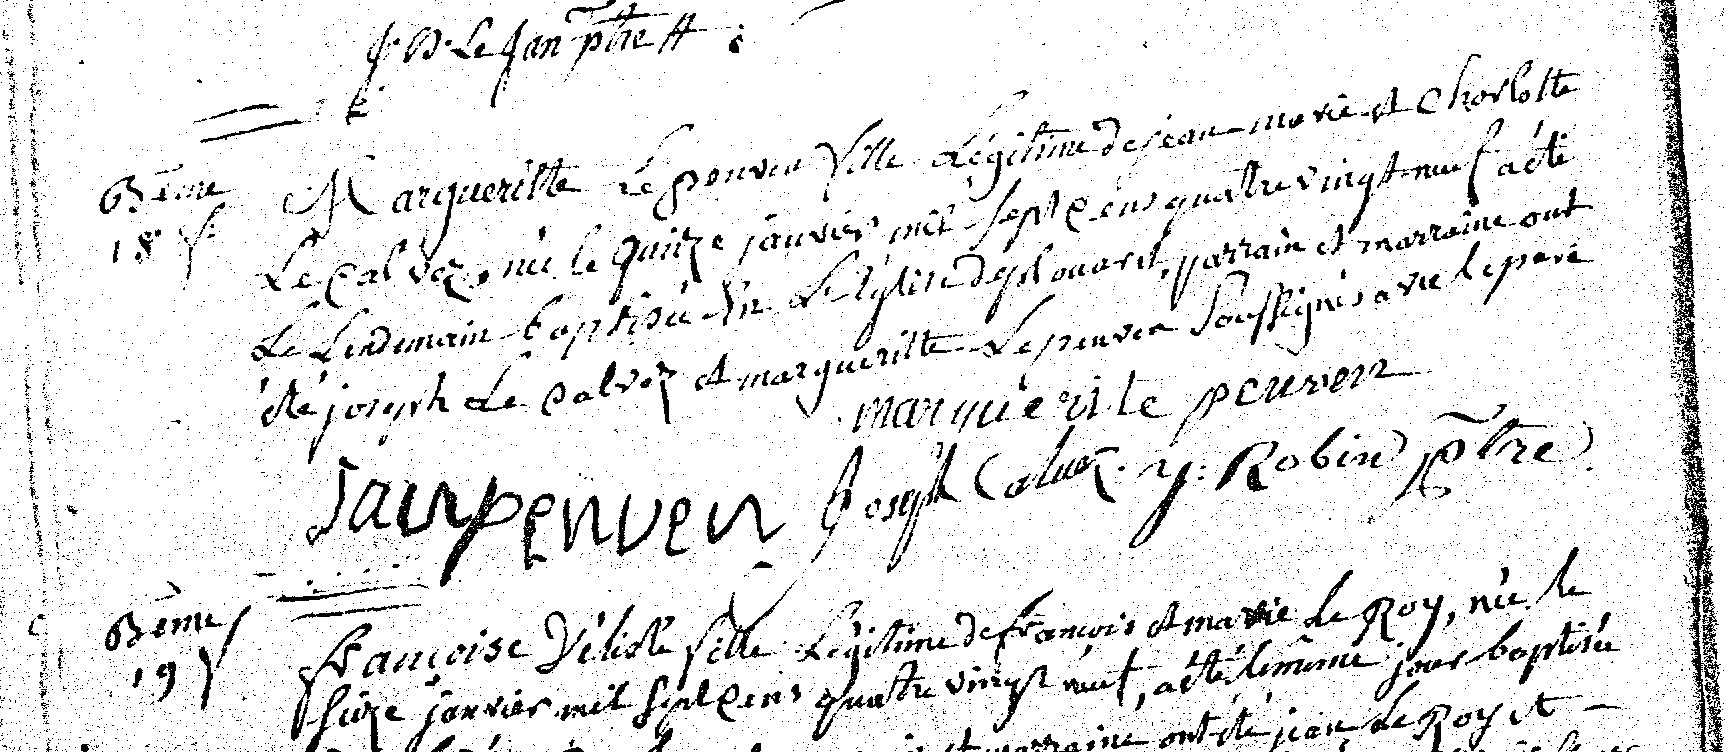 J. B. Le Jan ptre
Bême
18
Margueritte Le penven fille Légitime de jean marie et Charlotte
Le Calvez, née le quinze janvier mil sept cens quatre vingt neuf a été
Le Lendemain baptisée En L'Eglise de plouaret, parrain et marraine ont
été joseph Le Calvez et margueritte Le penven Soussignés avec le pere
marguerite penven
Jan penven Joseph Calvez . y. Robin ptre
Bême
19
françoise fille Légitime de françois et marie Le Roy, née le
Seize janvier mil sept cens quatre vingt neuf, a été le même jour baptisée
et marraine ont été jean Le Roy et